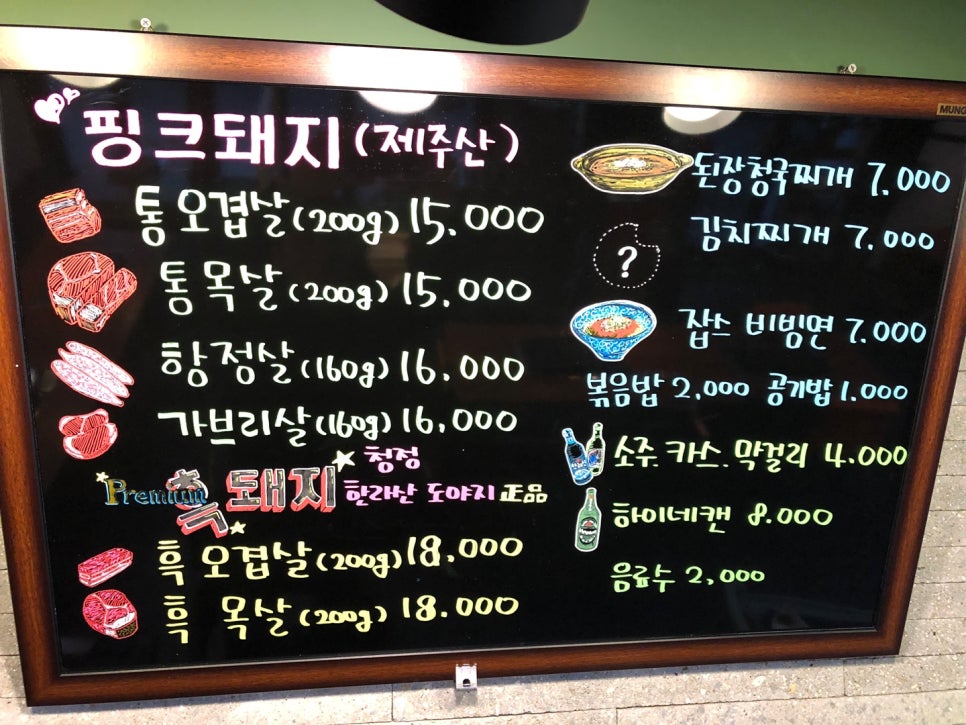 핑크돼지 (제주산)
통오겹살 (200g) 15,000
통목살 (200g) 15,000
항정살 (160g) 16,000
가브리살 (160g) 16,000
Premium 흑돼지 청정
한라산 도야지 正品
흑오겹살 (200g) 18,000
흑 목살 (200g) 18.000
된장청국찌개 7,000
김치찌개 7,000
?
잡스 비빔면 7,000
볶음밥 2,000 공기밥 1.000
소주.카스.막걸리 4.000
하이네캔 8.000
음료수 2,000
MUNG